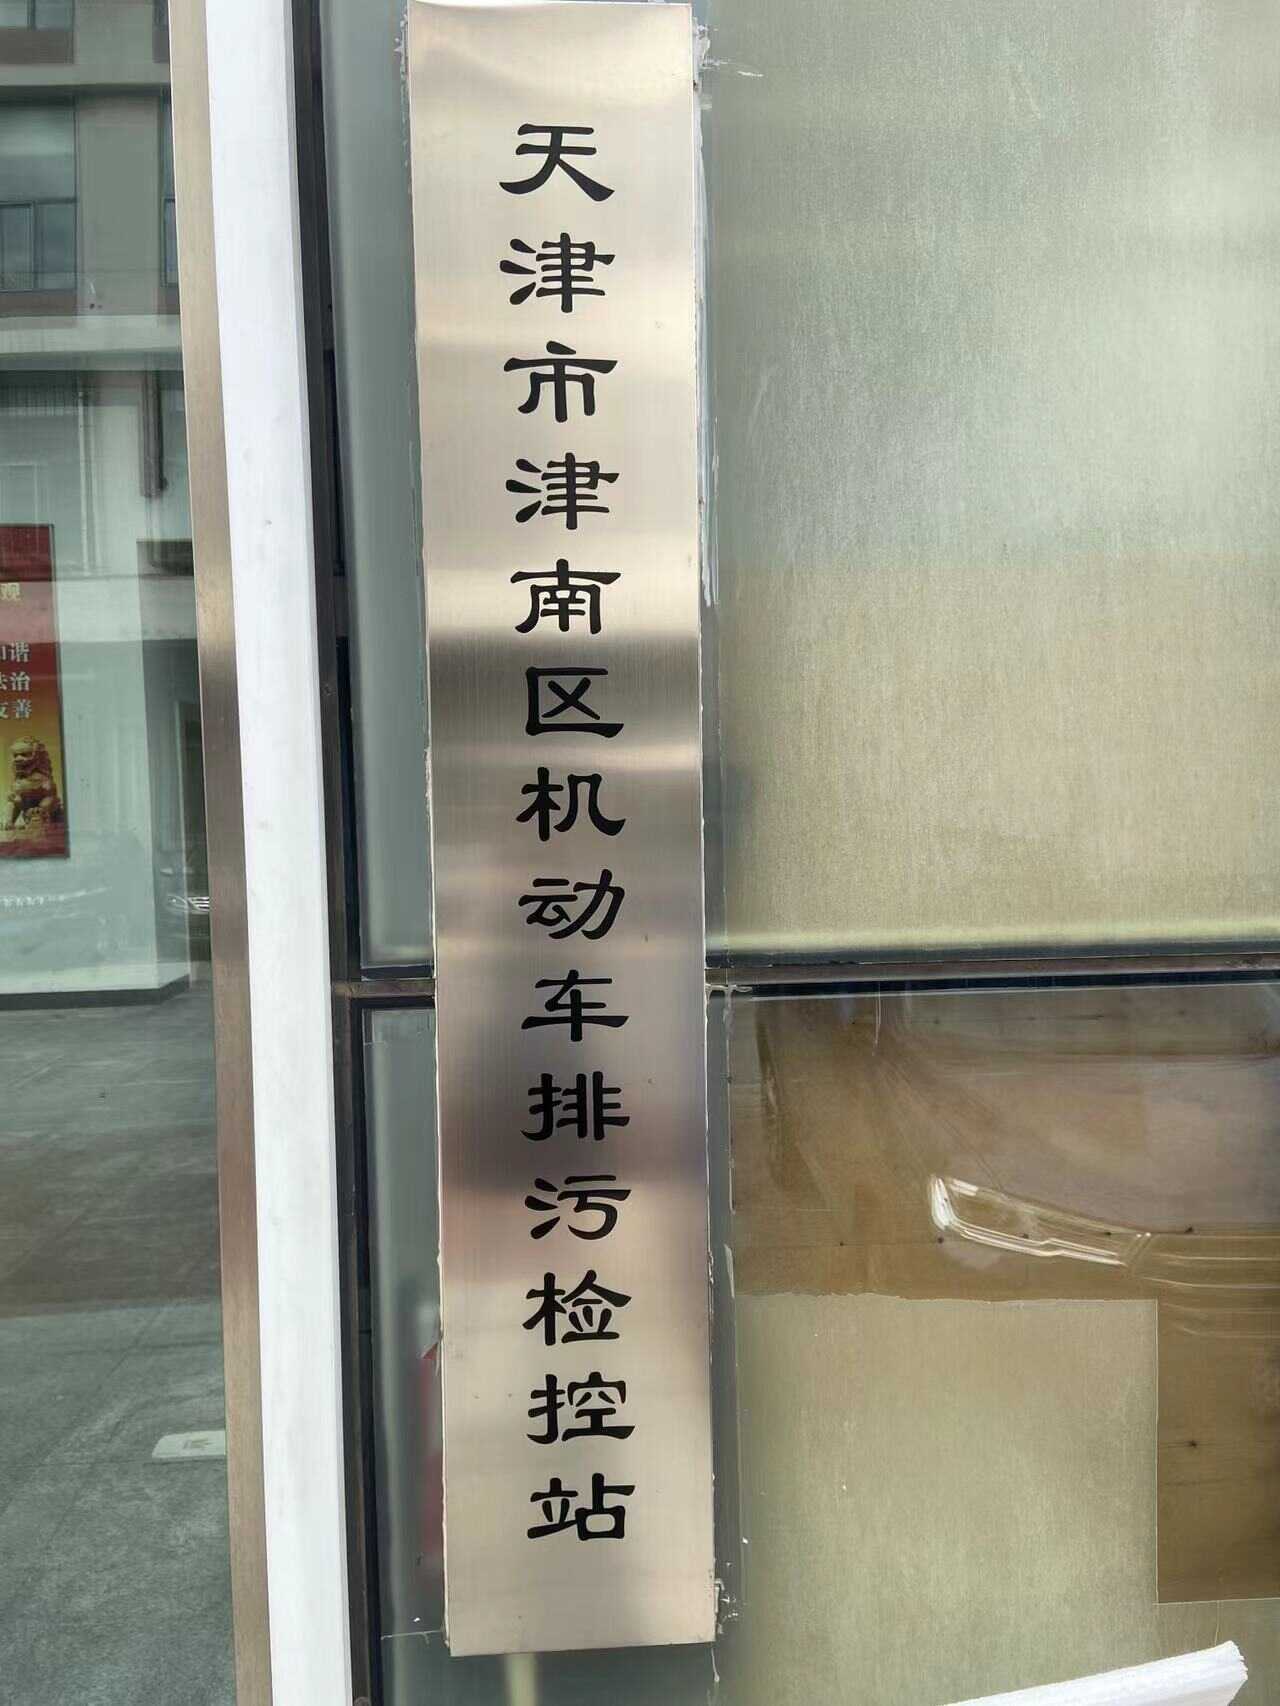 天津市津南区机动车排污检控站
观
谐
法治
友善